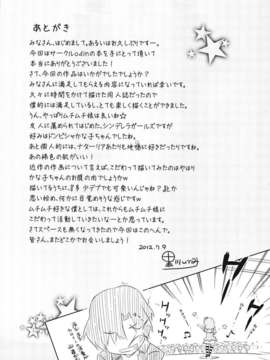 あとがき
みなさん、はじめまして。あるいはお久しぶりですー。
今回はサークルodinの本を手にとって頂いて
本当にありがとうございます！
さて、今回の作品はいかがでしたでしょうか？
みなさんに満足してもらえる内容になっていれば幸いです。
久々に時間をかけて描けた同人誌だったので
僕的には満足しているし、とても楽しく描くことができました。
うん。やっぱりムチムチ娘は良いね☆
友人に薦められてはじめた、シンデレラガールズですが
好みはドンピシャかな子ちゃんでしたね。
あと個人的には、ナターリアあたりも
あの褐色の肌がいい！
近作の作品について言えば、こだわって描いてみたのはやはり
かな子ちゃんのお腹の肉でしょうかw
描いているうちに、
思い始め、何かに目覚めそうな感じですw
ムチムチ好きな僕としては、これからもムチムチ娘に
こだわって活動していきたいなーとか思っています。
さてスペースも無くなってきたので今回はこのへんで。
皆さん、またどこかでお会いしましょう！
2012.7.9